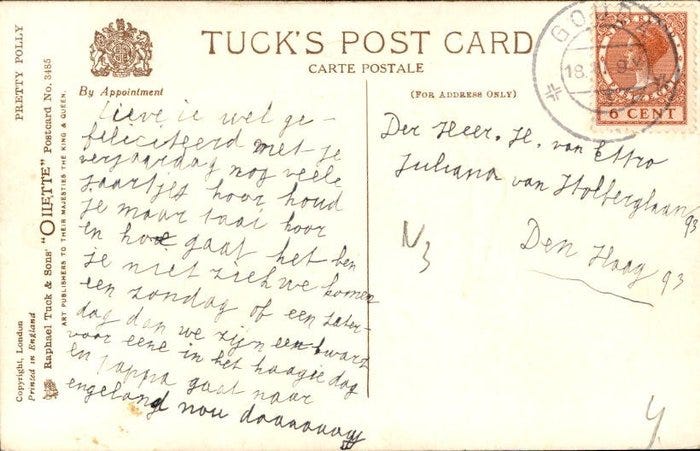 TUCK'S POST CARD
CARTE POSTALE
By Appointment
(FOR ADDRESS ONLY)
PRETTY POLLY
Raphael Tuck & Sons' "OILETTE" Postcard No. 3485
ART PUBLISHERS TO THEIR MAJESTIES THE KING & QUEEN.
Copyright, London
Printed in England
6 CENT
GOU
18.
Lieve ie wel ge-
feliciteerd met je
verjaardag nog veele
jaartjes hoor houd
je maar taai hoor
en hoe gaat het ben
je niet ziek we komen
een zondag of een zater-
dag dan we zijn een kwart
voor eene in het haagie dag
en pappa gaat naar
engeland nou daaaaaag
Der Heer. H. van Ettro
Juliana van Stolberglaan 93
Den Haag 93
N3